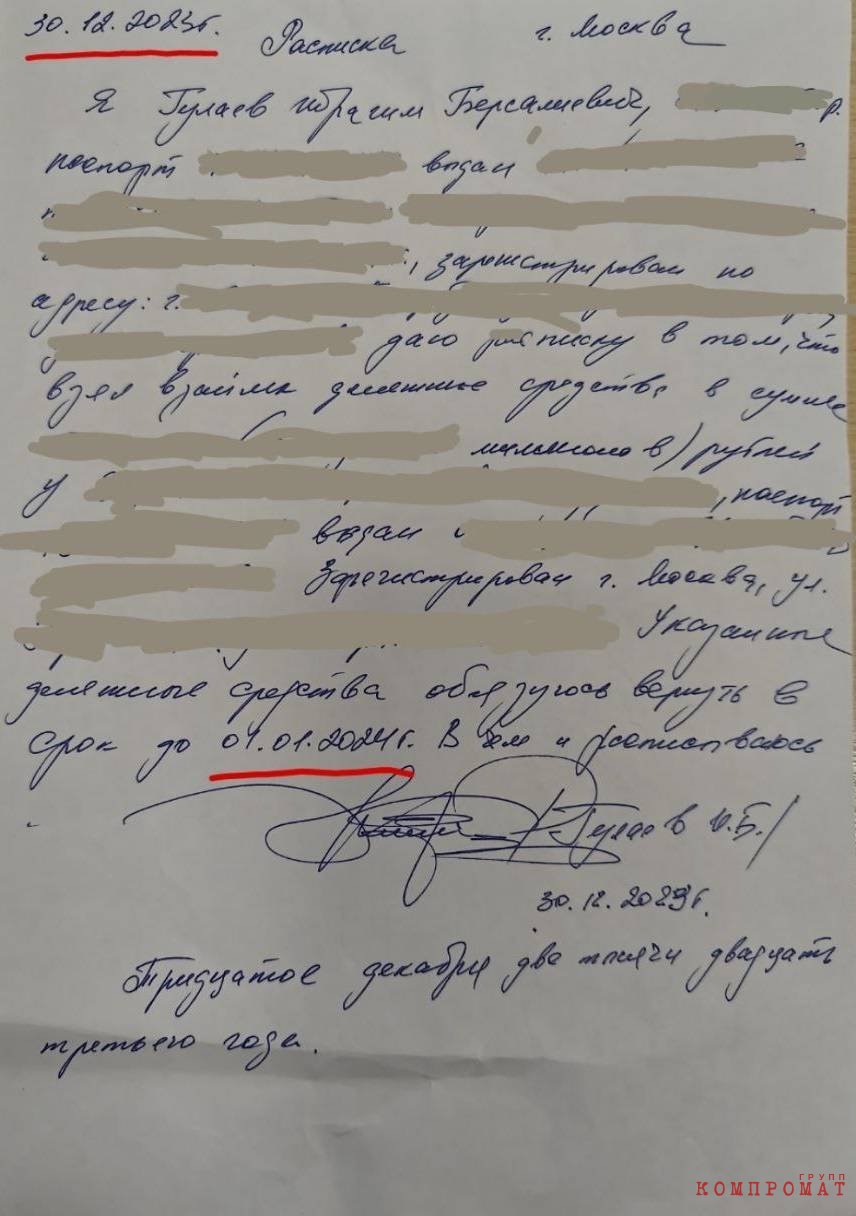 30.12.2023г.
Расписка г. Москва
Я Гулаев Ибрагим Берсалиевич, р.
паспорт выдан
, зарегистрирован по
адресу: г.
даю расписку в том, что
взял взаймы денежные средства в сумме
миллионов) рублей
у , паспорт
выдан
Зарегистрирован г. Москва, ул.
Указанные
денежные средства обязуюсь вернуть в
срок до 01.01.2024г. В чем и расписываюсь
Гулаев И.Б./
30.12.2023г.
Тридцатое декабря две тысячи двадцать
третьего года.
ГРУПП
КОМПРОМАТ